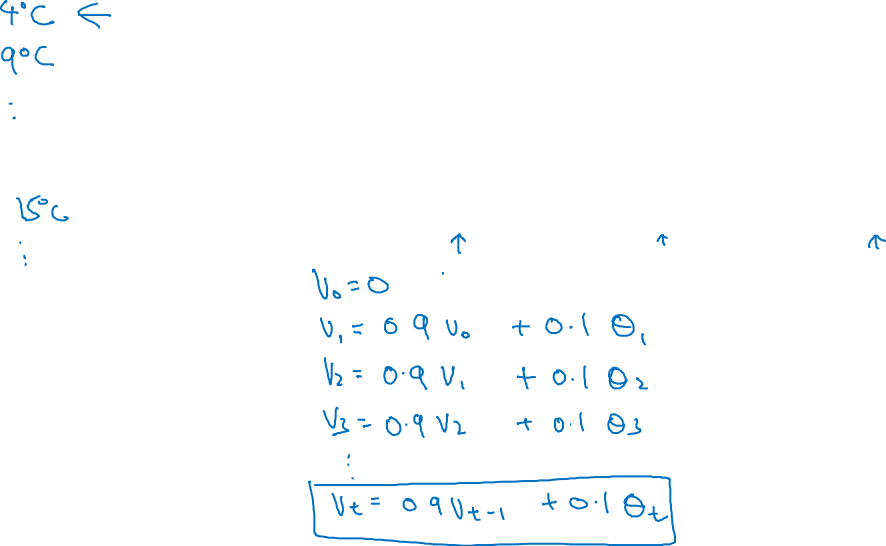 4°C ←
9°C
⋮
15°C
⋮
↑ ↑ ↑
V₀ = 0
V₁ = 0 9 V₀ + 0.1 θ₁
V₂ = 0.9 V₁ + 0.1 θ₂
V₃ = 0.9 V₂ + 0.1 θ₃
⋮
Vₜ = 0 9 Vₜ₋₁ + 0.1 θₜ